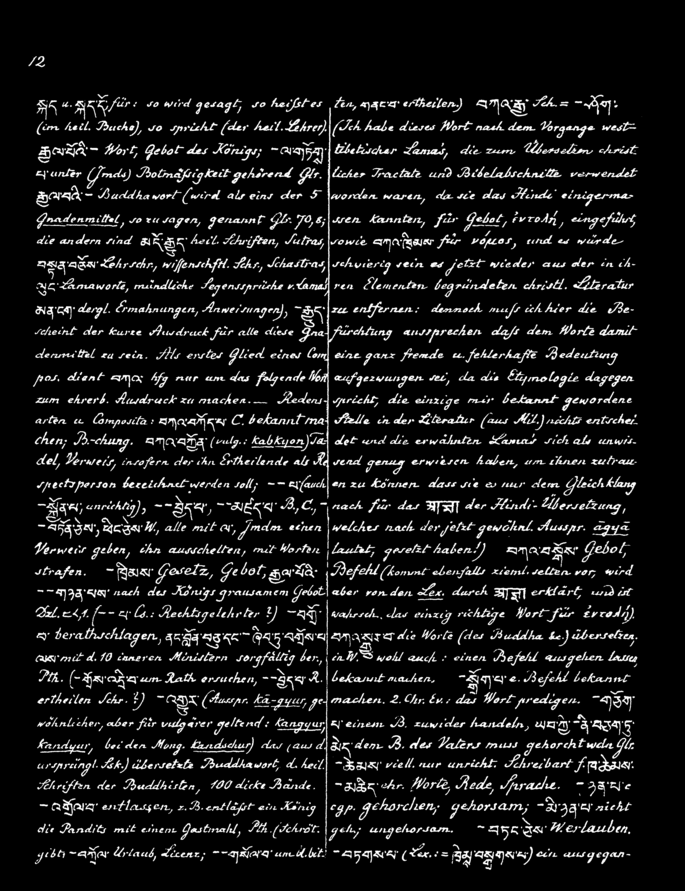 12
སྐད u. སྐད་དོ, für: so wird gesagt, so heißt es
(im heil. Buche), so spricht (der heil. Lehrer)
རྒྱལ་པོའི་ – Wort, Gebot des Königs; –
unter (Jmds) Botmäßigkeit gehörend Glr.
རྒྱལ་བའི་ – Buddhawort (wird als eins der 5
Gnadenmittel, so zu sagen, genannt Glr. 70,8;
die andern sind མདོ་རྒྱུད་ heil. Schriften, Sutras,
བསྟན་བཅོས་ Lehrschr., wissenschftl. Schr., Schastras,
ལུང་ Lamaworte, mündliche Segenssprüche v. Lamas
མན་ངག་ dergl. Ermahnungen, Anweisungen), –
scheint der kurze Ausdruck für alle diese Gna-
denmittel zu sein. Als erstes Glied eines Com
pos. dient བཀའ་ hfg nur um das folgende Wort
zum ehrerb. Ausdruck zu machen. — Redens-
arten u. Composita: བཀའ་བཀོད་པ་ C. bekannt ma-
chen; B. -chung. བཀའ་བཀྱོན་ (vulg.: kabkyon) Ta-
del, Verweis, insofern der ihn Ertheilende als Re
spectsperson bezeichnet werden soll; – – པ་ (auch
– སྐྱོན་པ་, unrichtig), – – བྱེད་པ་, – – མཛད་པ་ B., C., –
W., alle mit ལ་, Jmdm einen
Verweis geben, ihn ausschelten, mit Worten
strafen. – ཁྲིམས་ Gesetz, Gebot, རྒྱལ་པོའི་
– – གཉན་པས་ nach des Königs grausamem Gebot
Dzl. (– – པ་ Cs.: Rechtsgelehrter?) – བགྲོ་
བ་ berathschlagen, ནང་བློན་བཅུ་དང་ – ཞིབ་ཏུ་བགྲོས་པ་
ལས་ mit d. 10 inneren Ministern sorgfältig ber.,
Pth. (– གྲོས་འདྲི་བ་ um Rath ersuchen, – – བྱེད་པ་ R.
ertheilen Schr.?) – འགྱུར་ (Ausspr. kā-gyur, ge-
wöhnlicher, aber für vulgärer geltend: kangyur,
kandyur, bei den Mong. kandschur) das (aus d.
ursprüngl. Sk.) übersetzte Buddhawort, d. heil.
Schriften der Buddhisten, 100 dicke Bände.
– འགྲོལ་བ་ entlassen, z. B. entläßt ein König
die Pandits mit einem Gastmahl, Pth. (Schröt.
gibt: – བཀྲོལ་ Urlaub, Licenz; – – གསོལ་བ་ um id. bit-
ten, གནང་བ་ ertheilen.) བཀའ་རྒྱ་ Sch. = – ཤོག:
(Ich habe dieses Wort nach dem Vorgange west-
tibetischer Lama's, die zum Übersetzen christ
licher Tractate und Bibelabschnitte verwendet
worden waren, da sie das Hindi einigerma-
ssen kannten, für Gebot, ἐντολή, eingeführt,
sowie བཀའ་ཁྲིམས་ für νόμος, und es würde
schwierig sein es jetzt wieder aus der in ih-
ren Elementen begründeten christl. Literatur
zu entfernen: dennoch muß ich hier die Be-
fürchtung aussprechen daß dem Worte damit
eine ganz fremde u. fehlerhafte Bedeutung
aufgezwungen sei, da die Etymologie dagegen
spricht, die einzige mir bekannt gewordene
Stelle in der Literatur (aus Mil.) nichts entschei-
det und die erwähnten Lama's sich als unwis-
send genug erwiesen haben, um ihnen zutrau-
en zu können dass sie es nur dem Gleichklang
nach für das आज्ञा der Hindi-Übersetzung,
welches nach der jetzt gewöhnl. Ausspr. āgyā
lautet, gesetzt haben!) བཀའ་བསྒོས་ Gebot,
Befehl (kommt ebenfalls zieml. selten vor, wird
aber von den Lex. durch आज्ञा erklärt, und ist
wahrsch. das einzig richtige Wort für ἐντολή).
བཀའ་སྒྱུར་བ་ die Worte (des Buddha &c.) übersetzen,
in W. wohl auch: einen Befehl ausgehen lassen,
bekannt machen. – སྒྲོག་པ་ e. Befehl bekannt
machen. 2. Chr. Ev.: das Wort predigen. – གཅོག་
པ་ einem B. zuwider handeln, ཡབ་ཀྱི་ – ནི་བཅག་ཏུ་
མེད་ dem B. des Vaters muss gehorcht wdn Glr.
– ཆེམས་ viell. nur unricht. Schreibart f. ཁ་ཆེམས་.
– མཆིད་ ehr. Worte, Rede, Sprache. – ཉན་པ་ c
cgp. gehorchen; gehorsam; – མི་ཉན་པ་ nicht
geh., ungehorsam. – བཏང་ W. erlauben.
– བཏགས་པ་ (Lex.: = ) ein ausgegan-